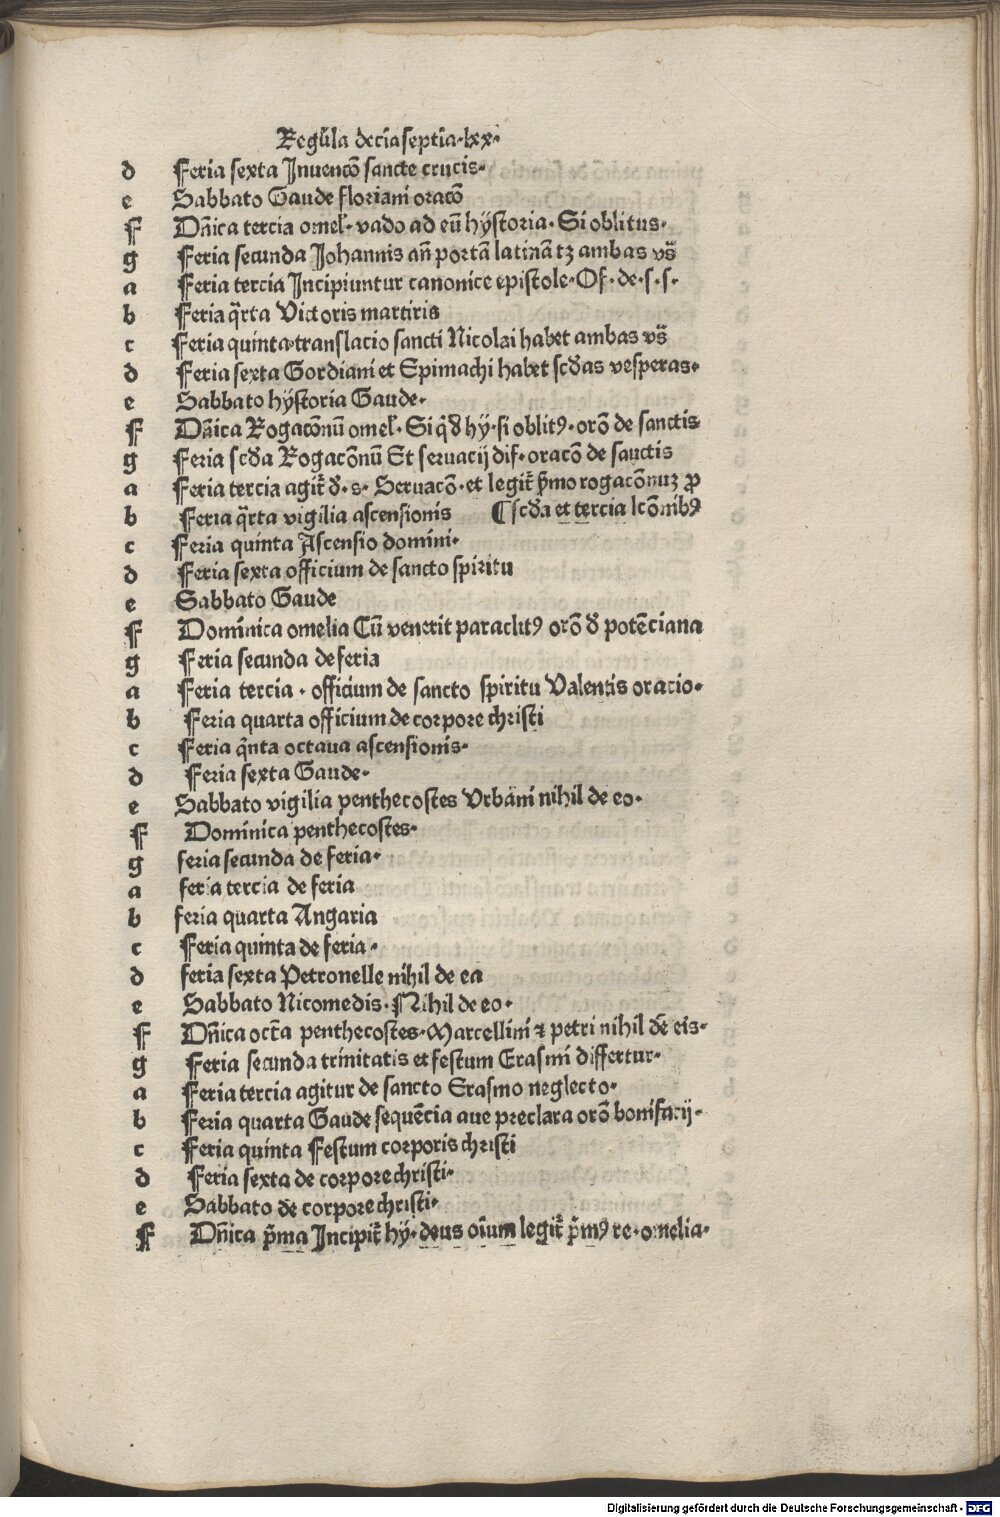 Regul̄a decīaseptīa·lxx·
d Feria sexta Inuencō sancte crucis·
e Sabbato Gaude floriani oracō
F Dn̄ica tercia omel̄· vado ad eū hy̋storia· Si oblitus·
g Feria secunda Johannis an̄ portā latinā tꝫ ambas vs̄
a Feria tercia Incipiuntur canonice epistole·Of·de·s·s·
b Feria q̄rta Victoris martiris
c Feria quinta·translacio sancti Nicolai habet ambas vs̄
d Feria sexta Gordiani et Epimachi habet scd̄as vesperas·
e Sabbato hy̋storia Gaude·
F Dn̄ica Rogacōnū omel̄· Si q̄d̄ hy̋·si oblitꝰ·orō de sanctis
g Feria scd̄a Rogacōnū Et seruacij dif·oracō de sanctis
a Feria tercia agit̄ d̄·s· Seruacō·et legit̄ p̄mo rogacōnuꝫ ꝓ
b Feria q̄rta vigilia ascensionis ¶scd̄a et tercia lcōnibꝰ
c Feria quinta Ascensio domini·
d Feria sexta officium de sancto spiritu
e Sabbato Gaude
F Dominica omelia Cū venerit paraclitꝰ orō d̄ potēciana
g Feria secunda de feria
a Feria tercia · officium de sancto spiritu Valentis oracio·
b Feria quarta officium de corpore christi
c Feria q̄nta octaua ascensionis·
d Feria sexta Gaude·
e Sabbato vigilia penthecostes Vrbani nihil de eo·
F Dominica penthecostes·
g feria secunda de feria·
a feria tercia de feria
b feria quarta Angaria
c Feria quinta de feria·
d feria sexta Petronelle nihil de ea
e Sabbato Nicomedis· Nihil de eo·
F Dn̄ica oct̄a penthecostes·Marcellini ⁊ petri nihil dē eis·
g Feria secunda trinitatis et festum Erasmi differtur·
a Feria tercia agitur de sancto Erasmo neglecto·
b Feria quarta Gaude sequēcia aue preclara orō bonifacij·
c Feria quinta Festum corporis christi
d Feria sexta de corpore christi·
e Sabbato de corpore christi·
F Dn̄ica p̄ma Incipit̄ hy̋· deus oīum legit̄ p̄mꝰ re·omelia·
Digitalisierung gefördert durch die Deutsche Forschungsgemeinschaft · DFG